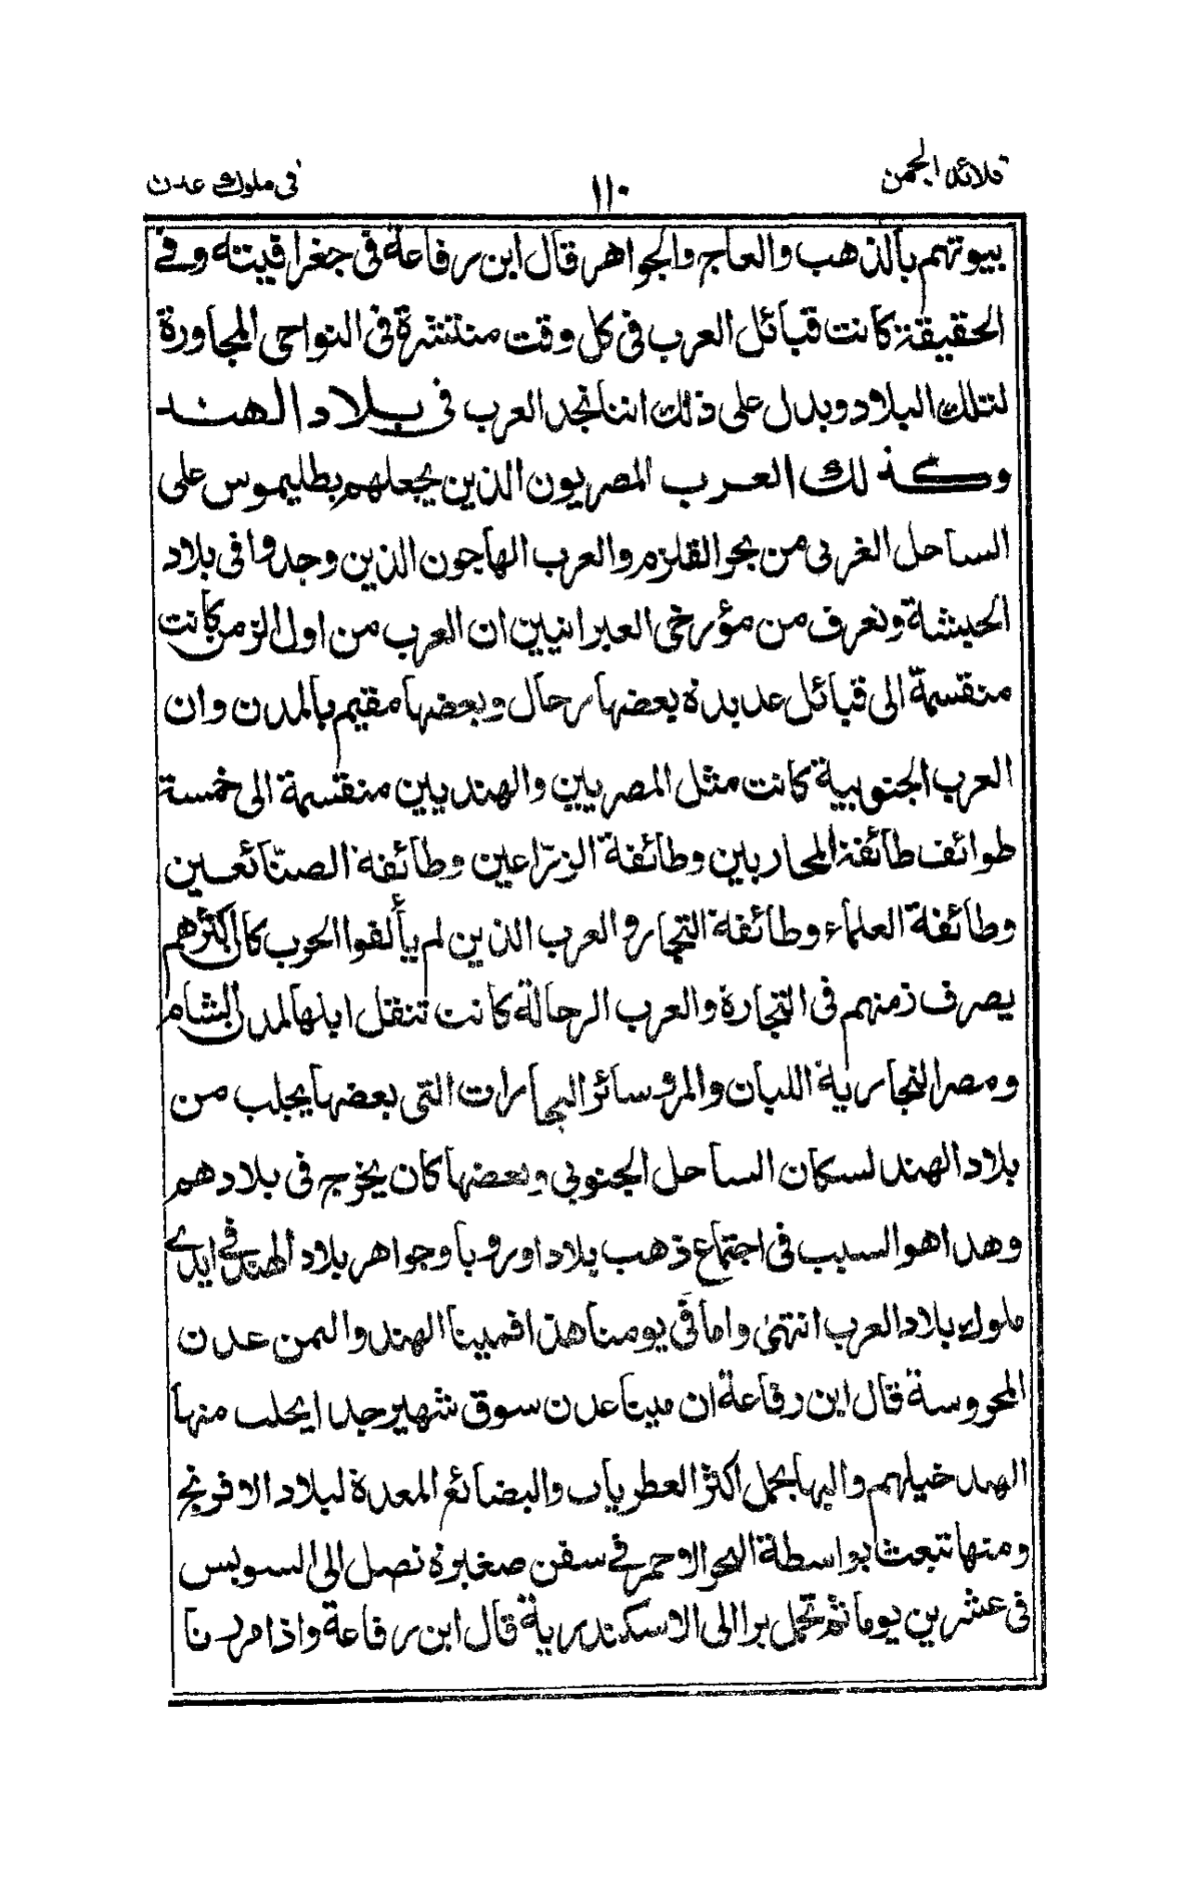 قلائد الجمن ١١٠ فى ملوك عدن
بيوتهم بالذهب والعاج والجواهر قال ابن رفاعة فى جغرافيته وفى
الحقيقة كانت قبائل العرب فى كل وقت منتشرة فى النواحى المجاورة
لتلك البلاد ويدل على ذلك اننا نجد العرب فى بلاد الهند
وكذلك العرب المصريون الذين يجعلهم بطليموس على
الساحل الغربى من بحر القلزم والعرب الهاجون الذين وجدوا فى بلاد
الحبشة ونعرف من مؤرخى العبرانيين ان العرب من اول الزمن كانت
منقسمة الى قبائل عديدة بعضها رحال وبعضها مقيم بالمدن وان
العرب الجنوبية كانت مثل المصريين والهنديين منقسمة الى خمسة
طوائف طائفة المحاربين وطائفة الزرّاعين وطائفة الصنّائعين
وطائفة العلماء وطائفة التجار والعرب الذين لم يألفوا الحرب كان اكثرهم
يصرف زمنهم فى التجارة والعرب الرحالة كانت تنقل ابلها لمدن الشام
ومصر التجارية اللبان والمر وسائر البهارات التى بعضها يجلب من
بلاد الهند لسكان الساحل الجنوبي وبعضها كان يخرج فى بلادهم
وهذا هو السبب فى اجتماع ذهب بلاد اوروبا وجواهر بلاد الهند فى ايدى
ملوك بلاد العرب انتهى واما فى يومنا هذا فمينا الهند واليمن عدن
المحروسة قال ابن رفاعة ان مينا عدن سوق شهير جدا يجلب منها
الهند خيلهم واليها يحمل اكثر العطريات والبضائع المعدة لبلاد الافرنج
ومنها تبعث بواسطة البحر الاحمر فى سفن صغيرة تصل الى السويس
فى عشرين يوما ثم تحمل برا الى الاسكندرية قال ابن رفاعة واذا مررنا